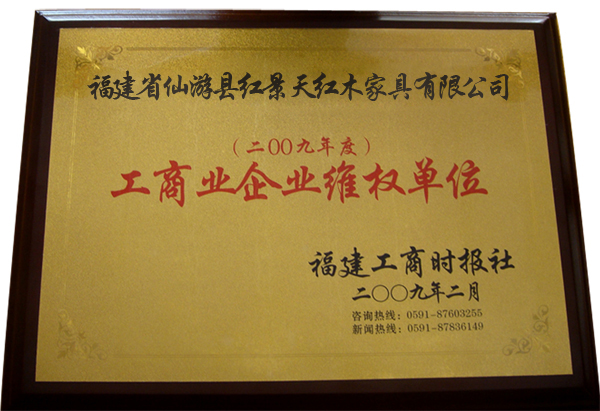 福建省仙游县红景天红木家具有限公司
(二00九年度)
工商业企业维权单位
福建工商时报社
二〇〇九年二月
咨询热线：0591-87603255
新闻热线：0591-87836149